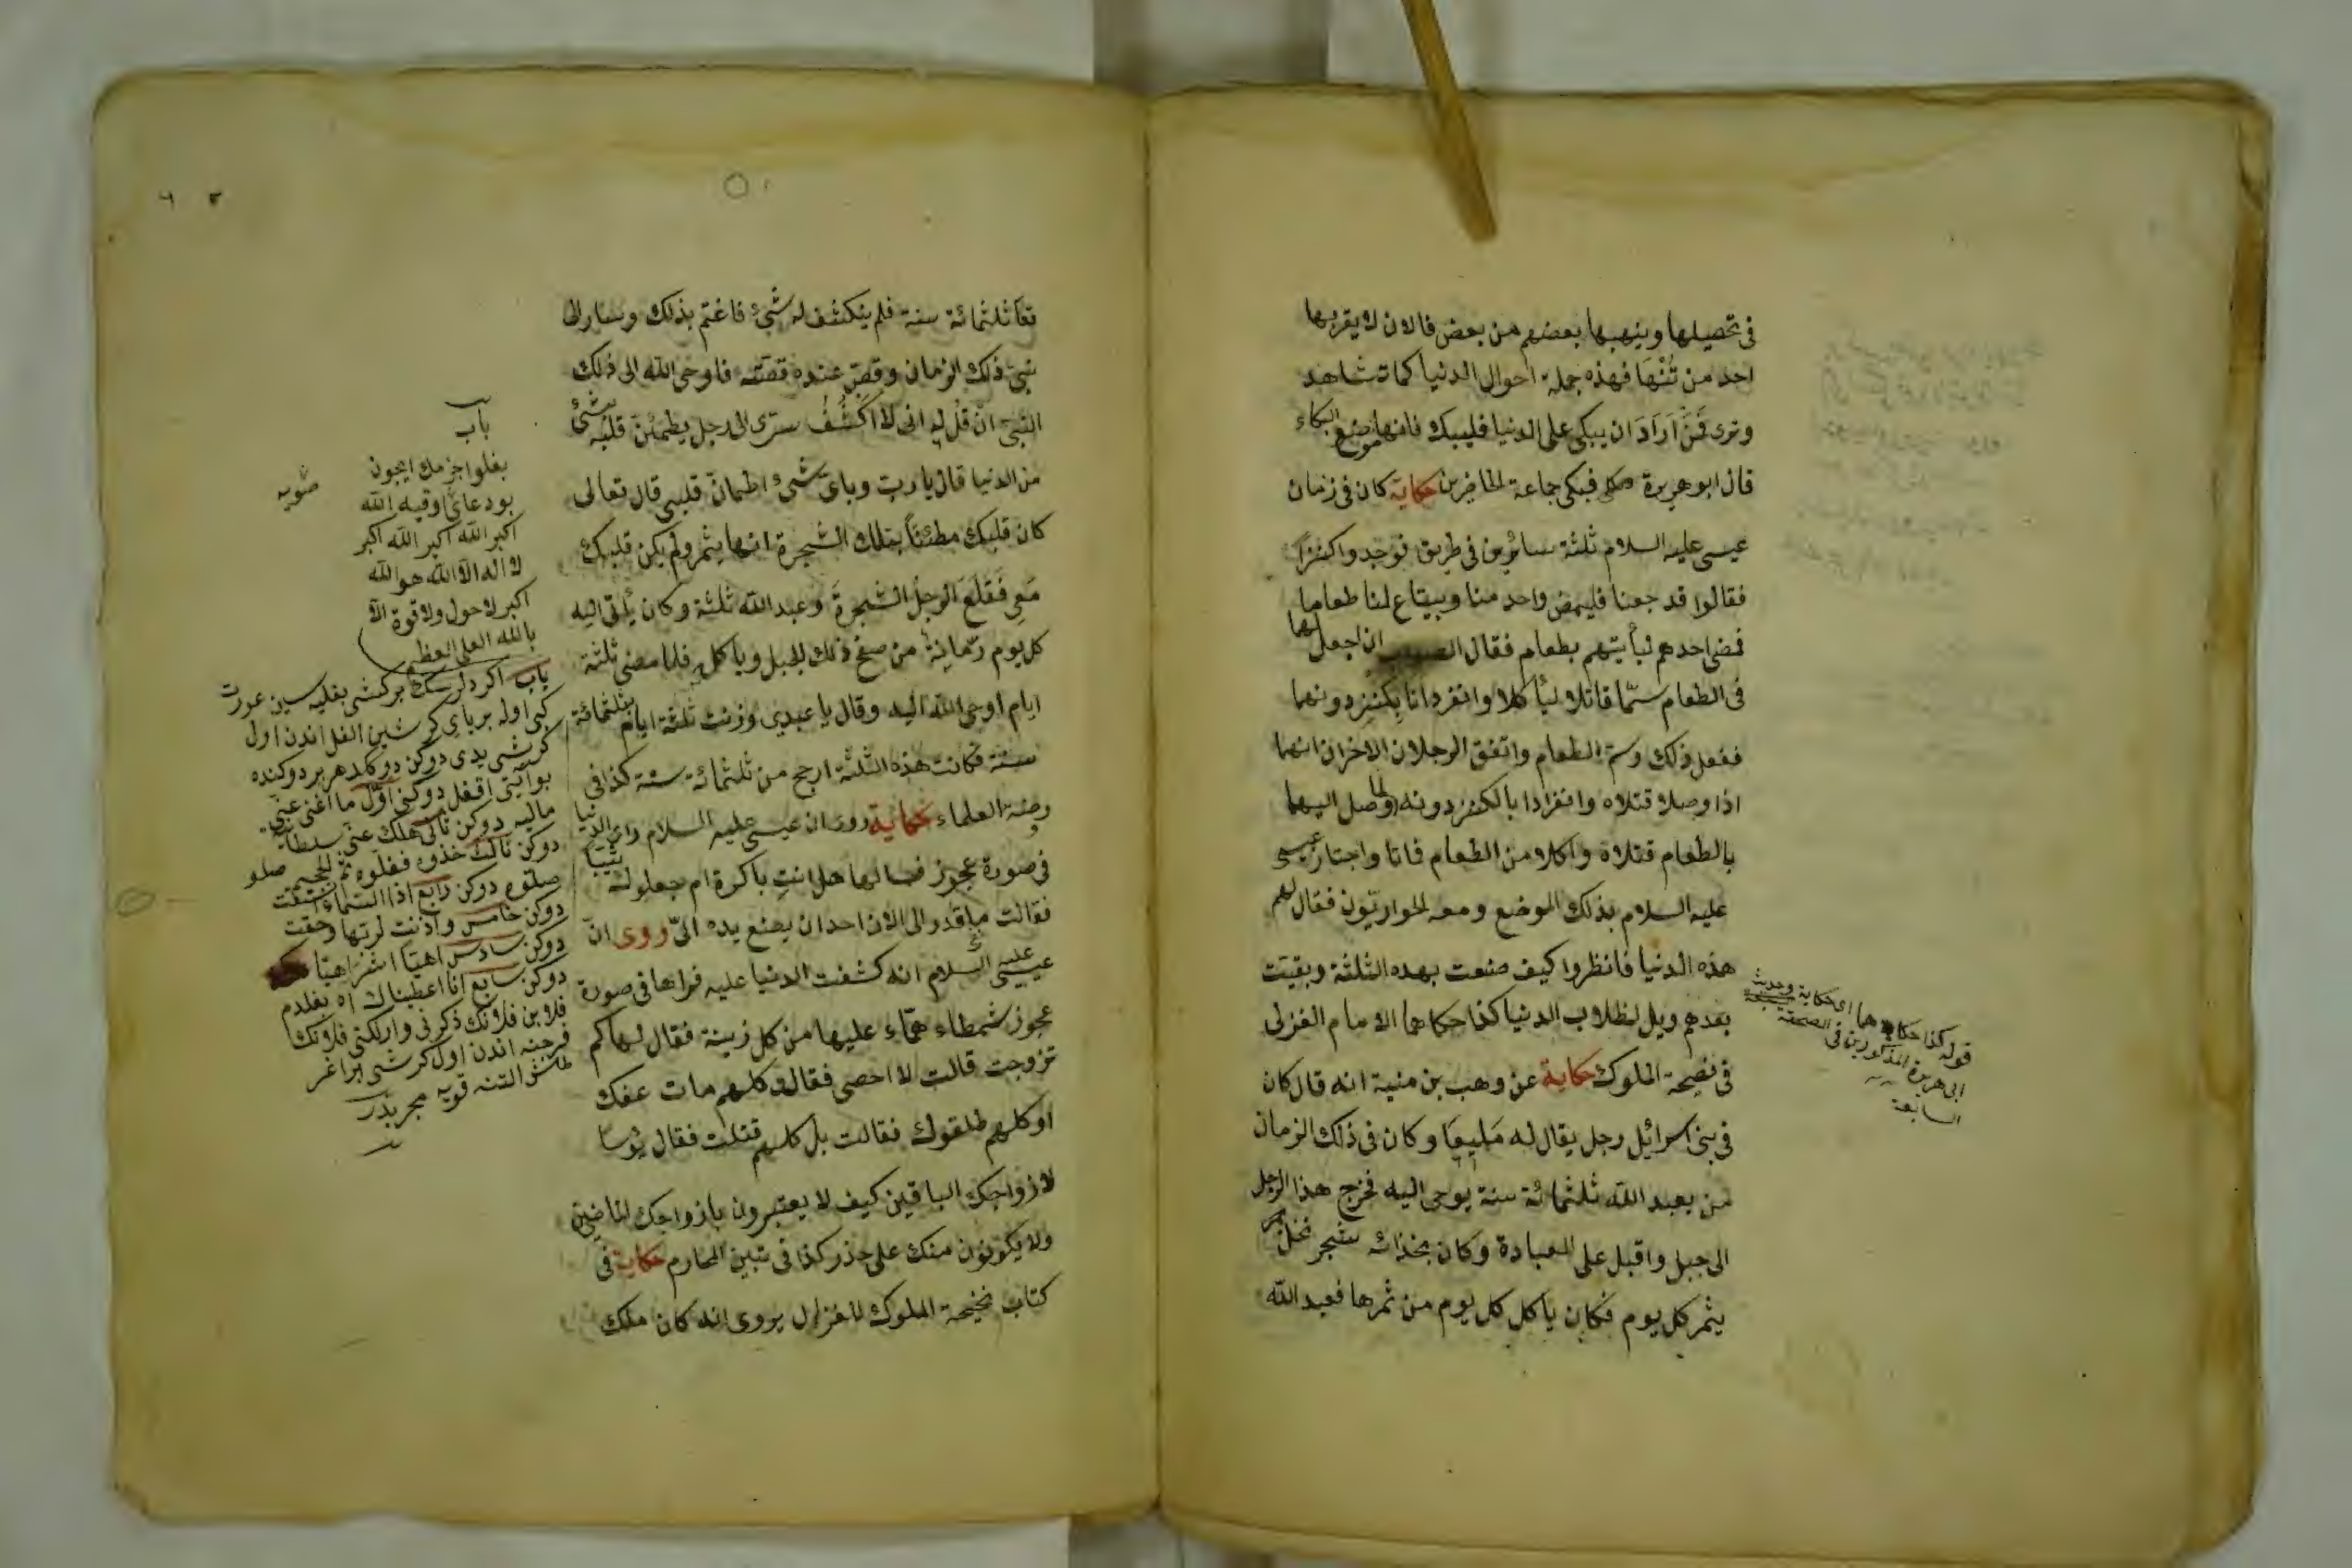 فى تحصيلها وينهبها بعضهم من بعض فالان لا يقربها
احد من نتنها فهذه جملة احوال الدنيا كما تشاهد
وترى فَمَنْ اَرَادَ ان يبكى على الدنيا فليبك فانها موضع البكاء
قال ابو هريرة فبكى جماعة الحاضرين حكاية كان فى زمان
عيسى عليه السلام ثلثة سائرين فى طريق فوجدوا كنزاً
فقالوا قد جعنا فليمض واحد منا ويبتاع لنا طعاما
فمضى احدهم ليأتيهم بطعام فقال الصواب ان اجعل لهما
فى الطعام سمّا قاتلا ليأكلا وانفرد انا بكنز دونهما
ففعل ذلك وسمّ الطعام واتفق الرجلان الاخران انهما
اذا وصلا قتلاه وانفردا بالكنز دونه ولما وصل اليهما
بالطعام قتلاه واكلا من الطعام فاتا واجتاز عيسى
عليه السلام بذلك الموضع ومعه الحواريّون فقال لهم
هذه الدنيا فانظروا كيف صنعت بهده الثلثة وبقيت
بعدهم ويل لطلاب الدنيا كذا حكاهما الامام الغزلى
فى نصيحة الملوك حكاية عن وهب بن منية انه قال كان
فى بنى اسرائيل رجل يقال له مَليقا وكان فى ذلك الزمان
من يعبد الله ثلثمائة سنة يوحى اليه فخرج هذا الرجل
الى جبل واقبل على العبادة وكان بخذائه شجر نخل
يثمر كل يوم فكان ياكل كل يوم من ثمرها فعبد الله
قوله كذا حكاهما اى حكاية وحديث
ابى هريرة المذكورين فى الصحيفة
السابعة
تعا ثلثمائة سنة فلم ينكشف له شئ فاغتم بذلك وسار الى
نبىّ ذلك الزمان وقصّ عنده قصّته فاوحى الله الى ذلك
النبىّ انّ قل له انى لا اَكْشُفُ سرّى الى رجل يطمئنّ قلبه بشئ
من الدنيا قال يا ربّ وباى شئ اطمانّ قلبى قال تعالى
كان قلبك مطمئنًّا بتلك الشجرة انها يثمر ولم يكن قلبك
مَعِى فَقَلَعَ الرجل الشجرةَ وعبد الله ثلثة وكان يأتى اليه
كل يوم رمّانة من صخ ذلك الجبل وياكل فلما مضى ثلثة
ايام اوحى الله اليه وقال يا عبدى وزنت ثلثة ايام بثلثمائة
سنة فكانت هذه الثلثة ارجح من ثلثمائة سنة كذا فى
روضة العلماء حكاية روى ان عيسى عليه السلام راى الدنيا
فى صورة عجوز فسالها هل انتِ باكرة ام جعلوك ثيّبا
فقالت ما قدر الى الان احد ان يصنع يده الىّ روى انّ
عيسى عليه السلام انه كشفت الدنيا عليه فراها فى صورة
عجوز شمطاء همّاء عليها من كل زينة فقال لها كم
تزوجت قالت لا احصى فقال كلهم مات عفك
او كلهم طلقوك فقالت بل كلهم قتلت فقال بؤسا
لازواجك الباقين كيف لا يعتبرون بازواجك الماضين
ولا يكونون منك على حذر كذا فى تبين المحارم حكاية فى
كتاب نخيحة الملوك للغزال يروى انه كان ملك
باب
بغلو اجزمك ايجون
بو دعائى اوقيه الله
اكبر الله اكبر الله اكبر
لا اله الا الله هو الله
اكبر لا حول ولا قوة الا
بالله العلى العظيم
باب اكر دلرسك بر كشى بغليه سين عورت
دوكن ثالث خذوه فغلّوه ثم الجحيم صلو
صلّوه دوكن رابع اذا السماء انشقت
دوكن خامس واذنت لربها وحقت
دوكن سادس اهيّا اشراهيّا
دوكن سابع انا اعطيناك اه بغلدم